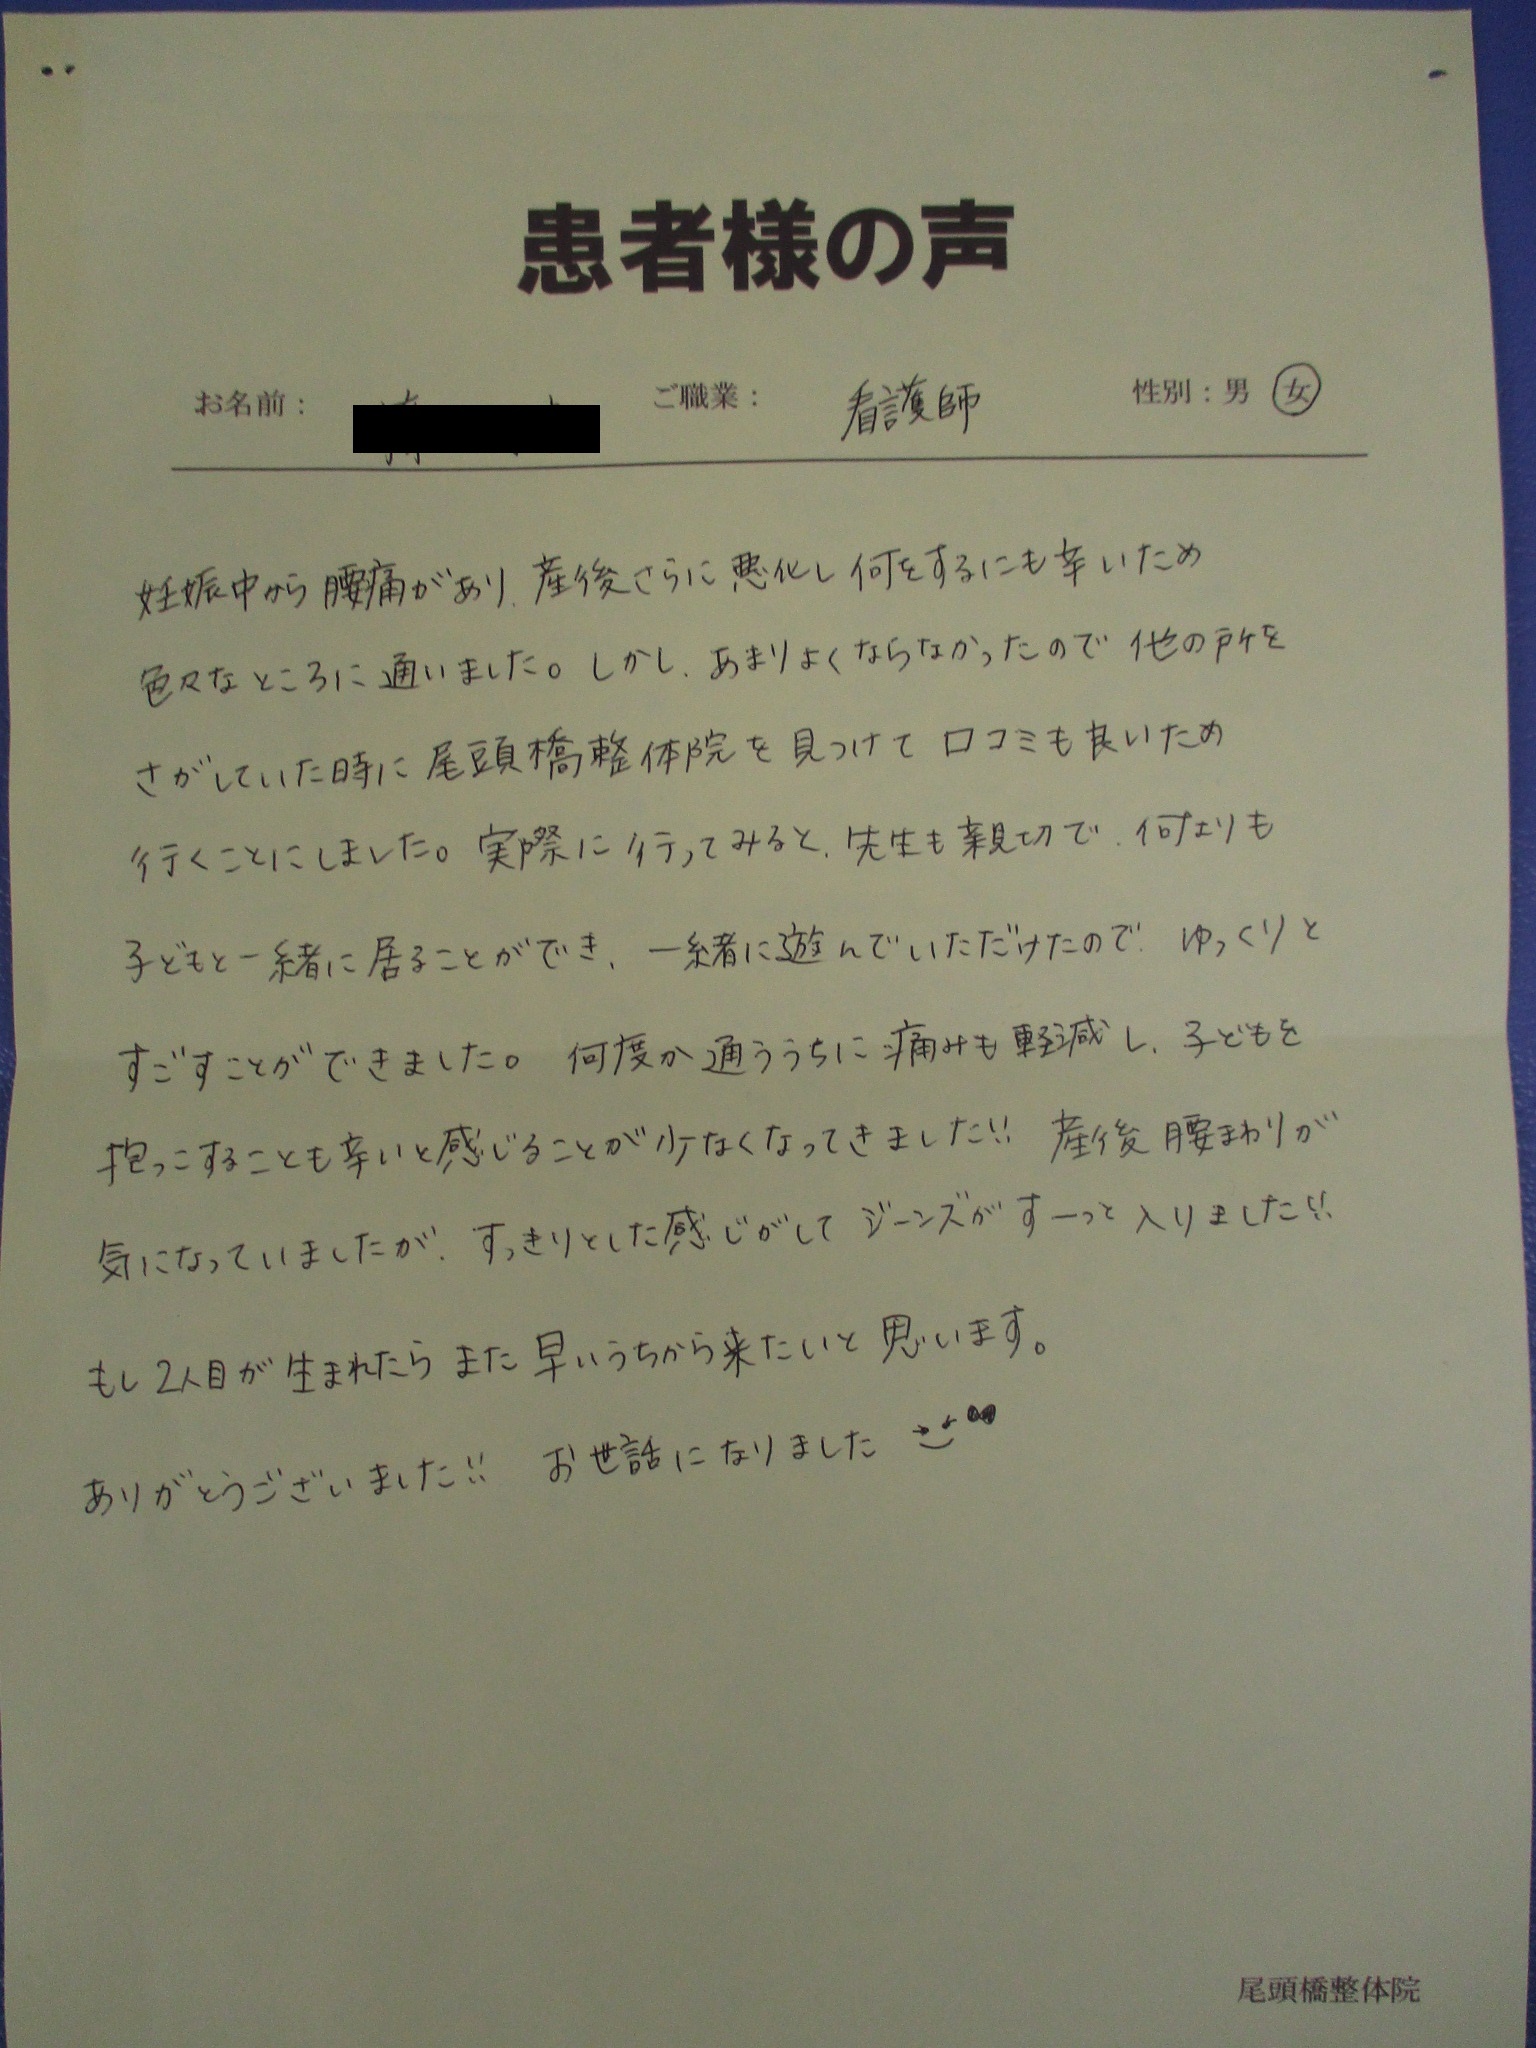 患者様の声
お名前： ご職業： 看護師 性別：男 女
妊娠中から腰痛があり、産後さらに悪化し何をするにも辛いため
色々なところに通いました。しかし、あまりよくならなかったので他の所を
さがしていた時に尾頭橋整体院を見つけて口コミも良いため
行くことにしました。実際に行ってみると、先生も親切で、何よりも
子どもと一緒に居ることができ、一緒に遊んでいただけたので、ゆっくりと
すごすことができました。何度か通ううちに痛みも軽減し、子どもを
抱っこすることも辛いと感じることが少なくなってきました!! 産後腰まわりが
気になっていましたが、すっきりとした感じがしてジーンズがすーっと入りました!!
もし2人目が生まれたらまた早いうちから来たいと思います。
ありがとうございました!! お世話になりました
尾頭橋整体院